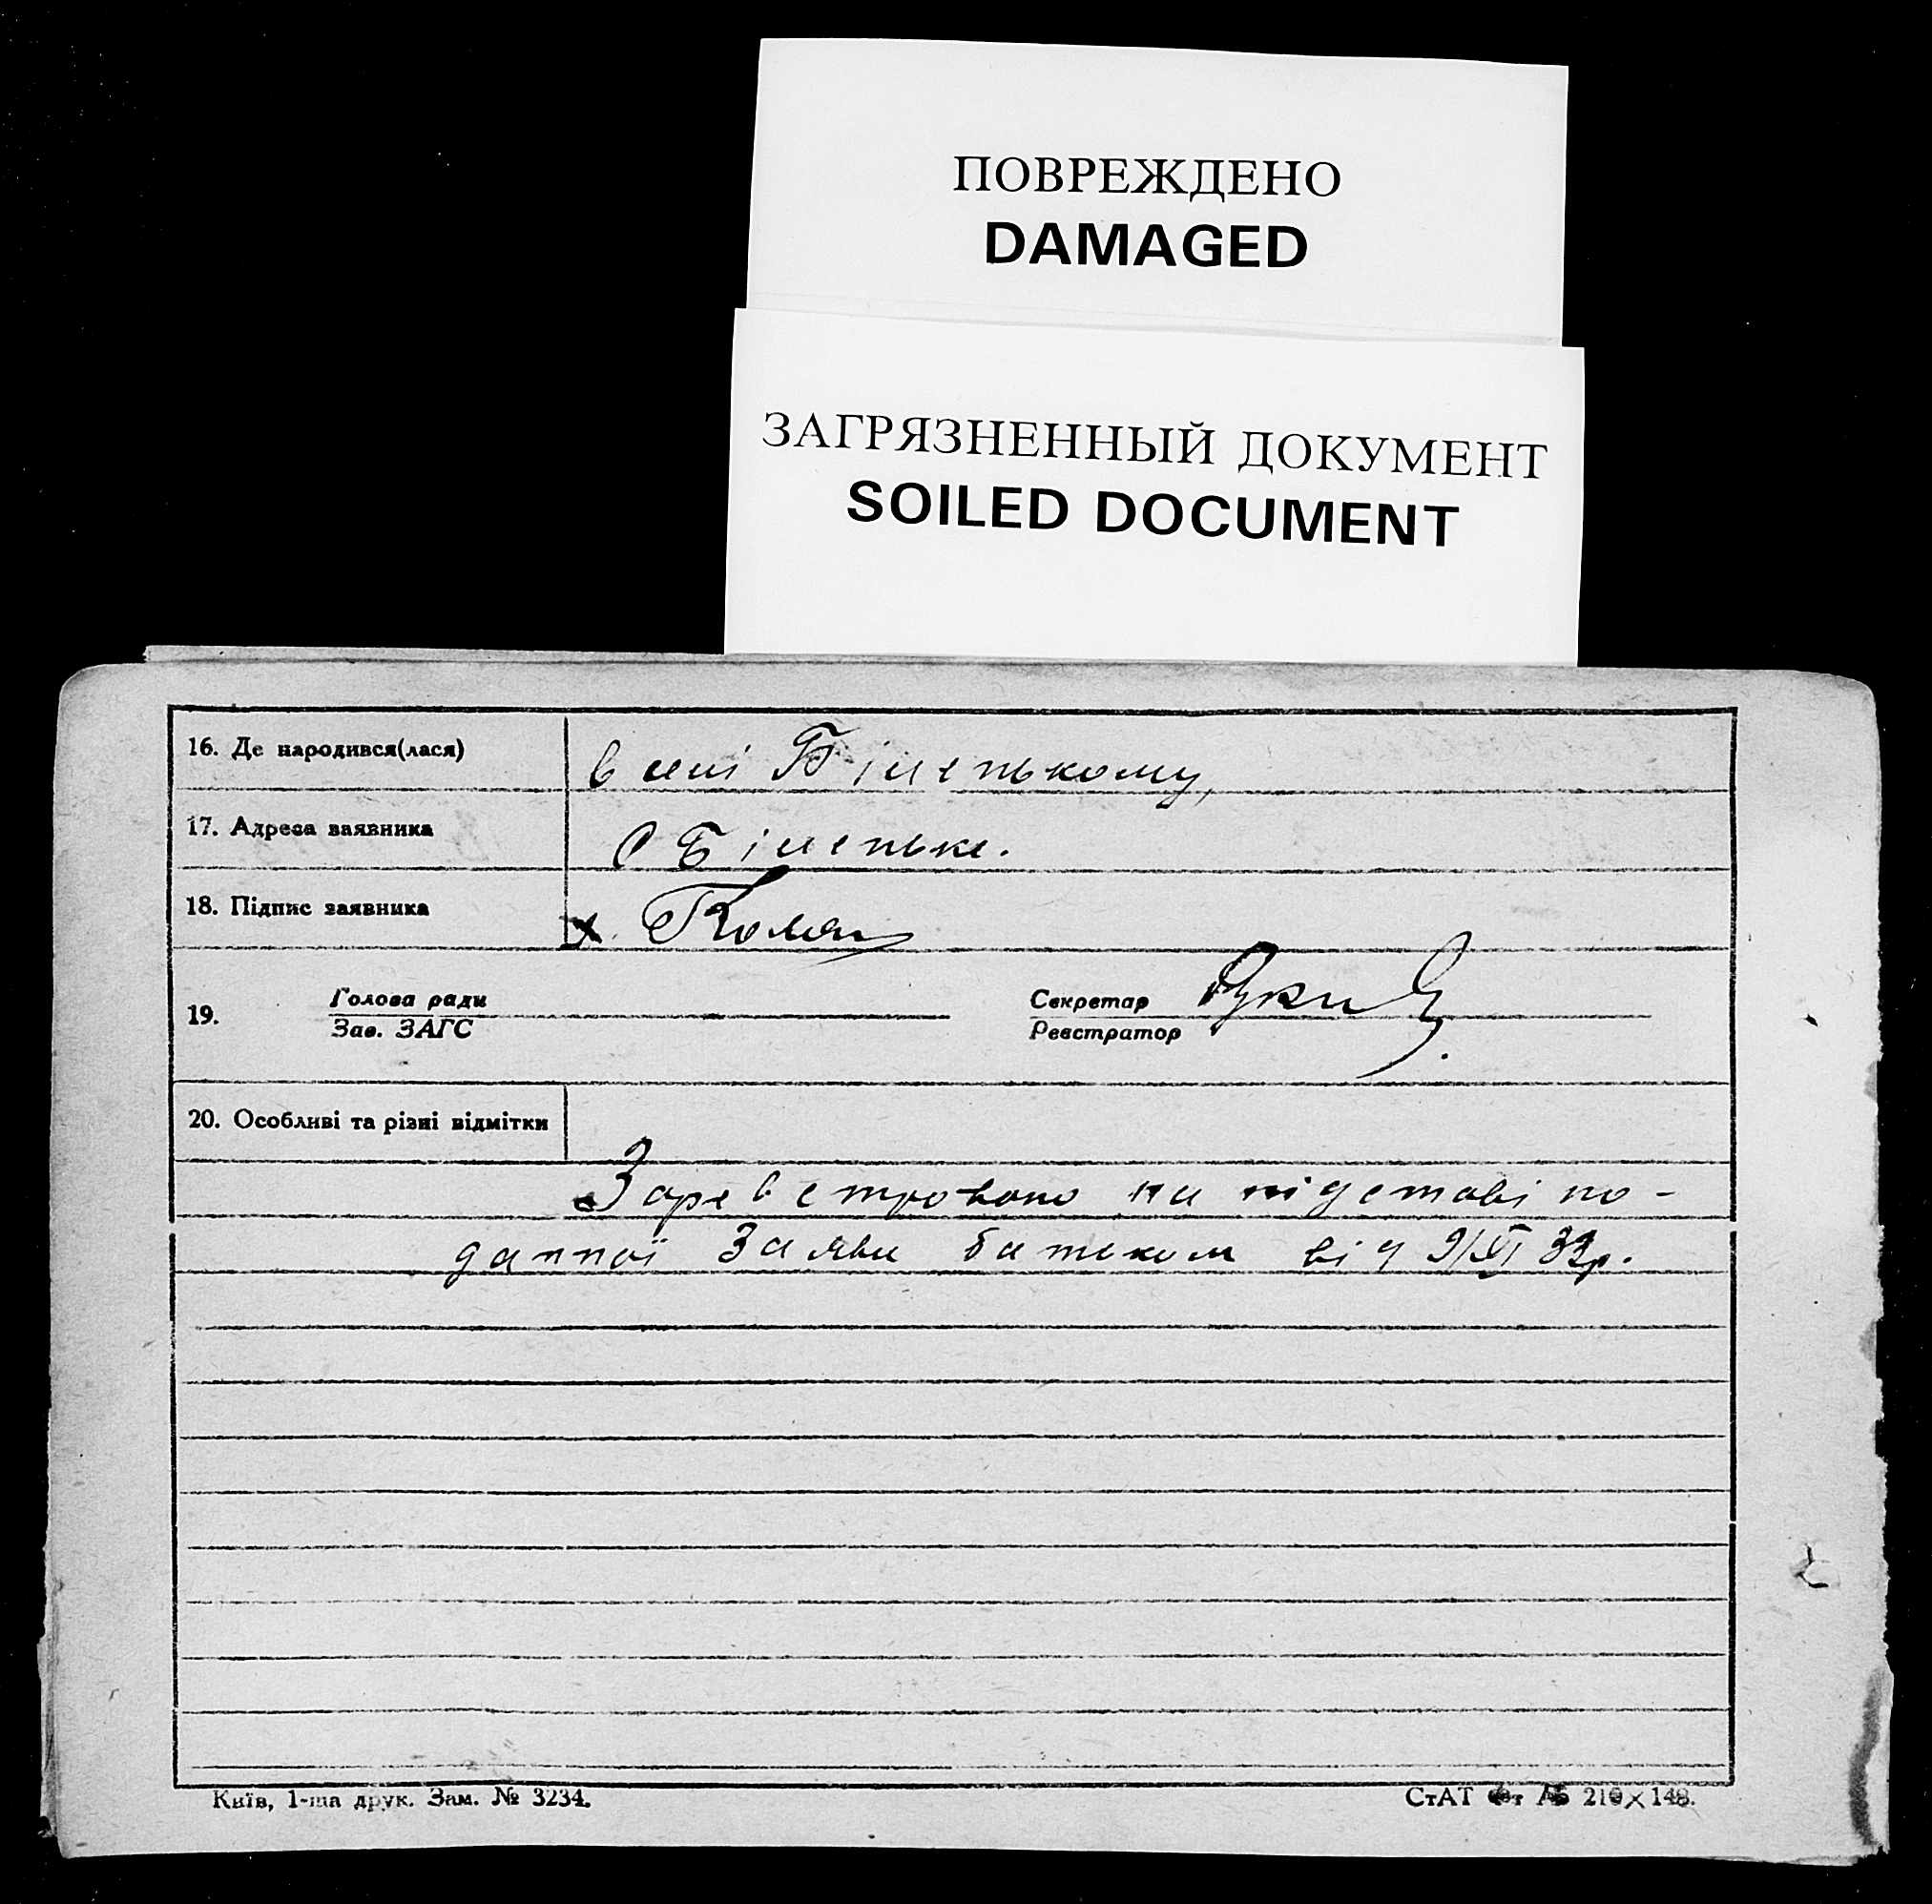 ПОВРЕЖДЕНО
DAMAGED
ЗАГРЯЗНЕННЫЙ ДОКУМЕНТ
SOILED DOCUMENT
16. Де народився(лася) в селі Біленькому,
17. Адреса заявника С Біленьке.
18. Підпис заявника х
19. Голова ради
Зав. ЗАГС
Секретар
Реєстратор
20. Особливі та різні відмітки
Зареєстровано на підставі по-
данної Заяви батьком від 9/XI 33р.
Київ, 1-ша друк. Зам. № 3234.
СтАТ 210×148.